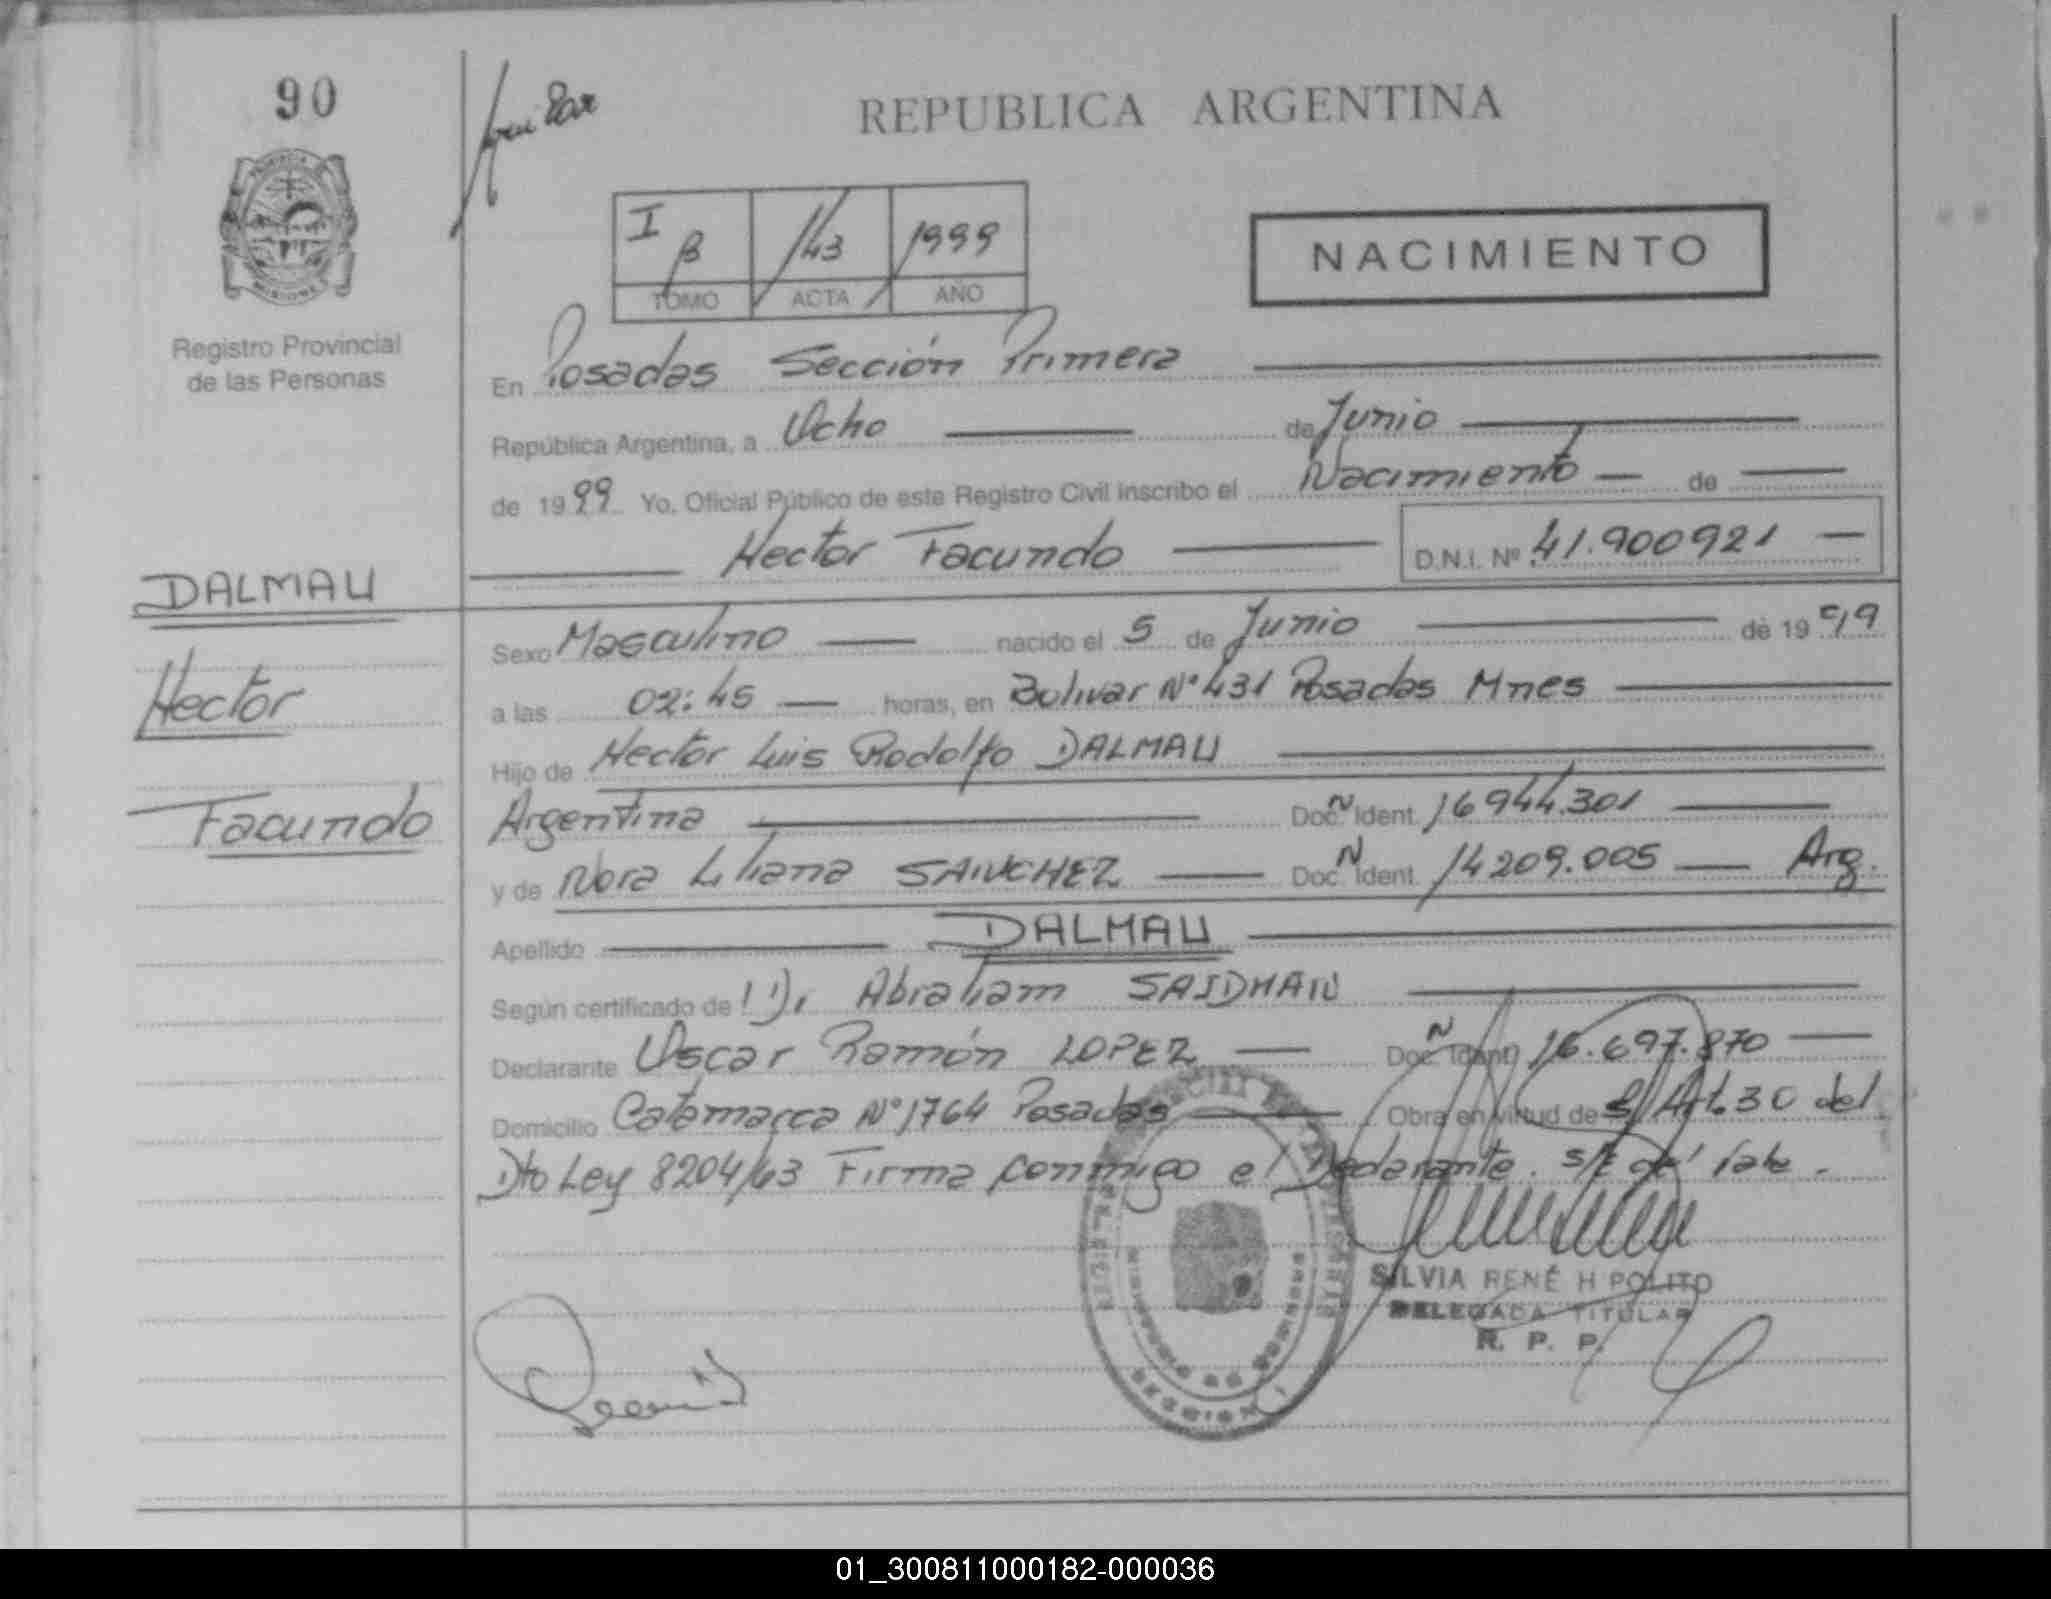 90
REPUBLICA ARGENTINA
PROVINCIA
MISIONES
I B 143 1999
TOMO ACTA AÑO
NACIMIENTO
Registro Provincial
de las Personas
En Posadas Sección Primera
República Argentina, a Ocho de Junio
de 1999 Yo, Oficial Público de este Registro Civil Inscribo el Nacimiento de
Hector Facundo D.N.I. Nº 41.900921
DALMAU
Hector
Facundo
Sexo Masculino nacido el 5 de Junio de 1999
a las 02:45 horas, en Bolivar Nº 431 Posadas Mnes
Hijo de Hector Luis Rodolfo DALMAU
Argentina Doc. N Ident. 16944.301
y de Nora Liliana SANCHEZ Doc. N Ident. 14209.005 Arg.
Apellido DALMAU
Según certificado de Dr. Abraham SAIDMAN
Declarante Oscar Ramón LOPEZ Doc. N Ident. 16.697.870
Domicilio Catamarca Nº 1764 Posadas Obra en virtud de Art. 30 del
Dto Ley 8204/63 Firma conmigo el Declarante.
SILVIA RENÉ HIPOLITO
DELEGADA TITULAR
R. P. P.
01_300811000182-000036